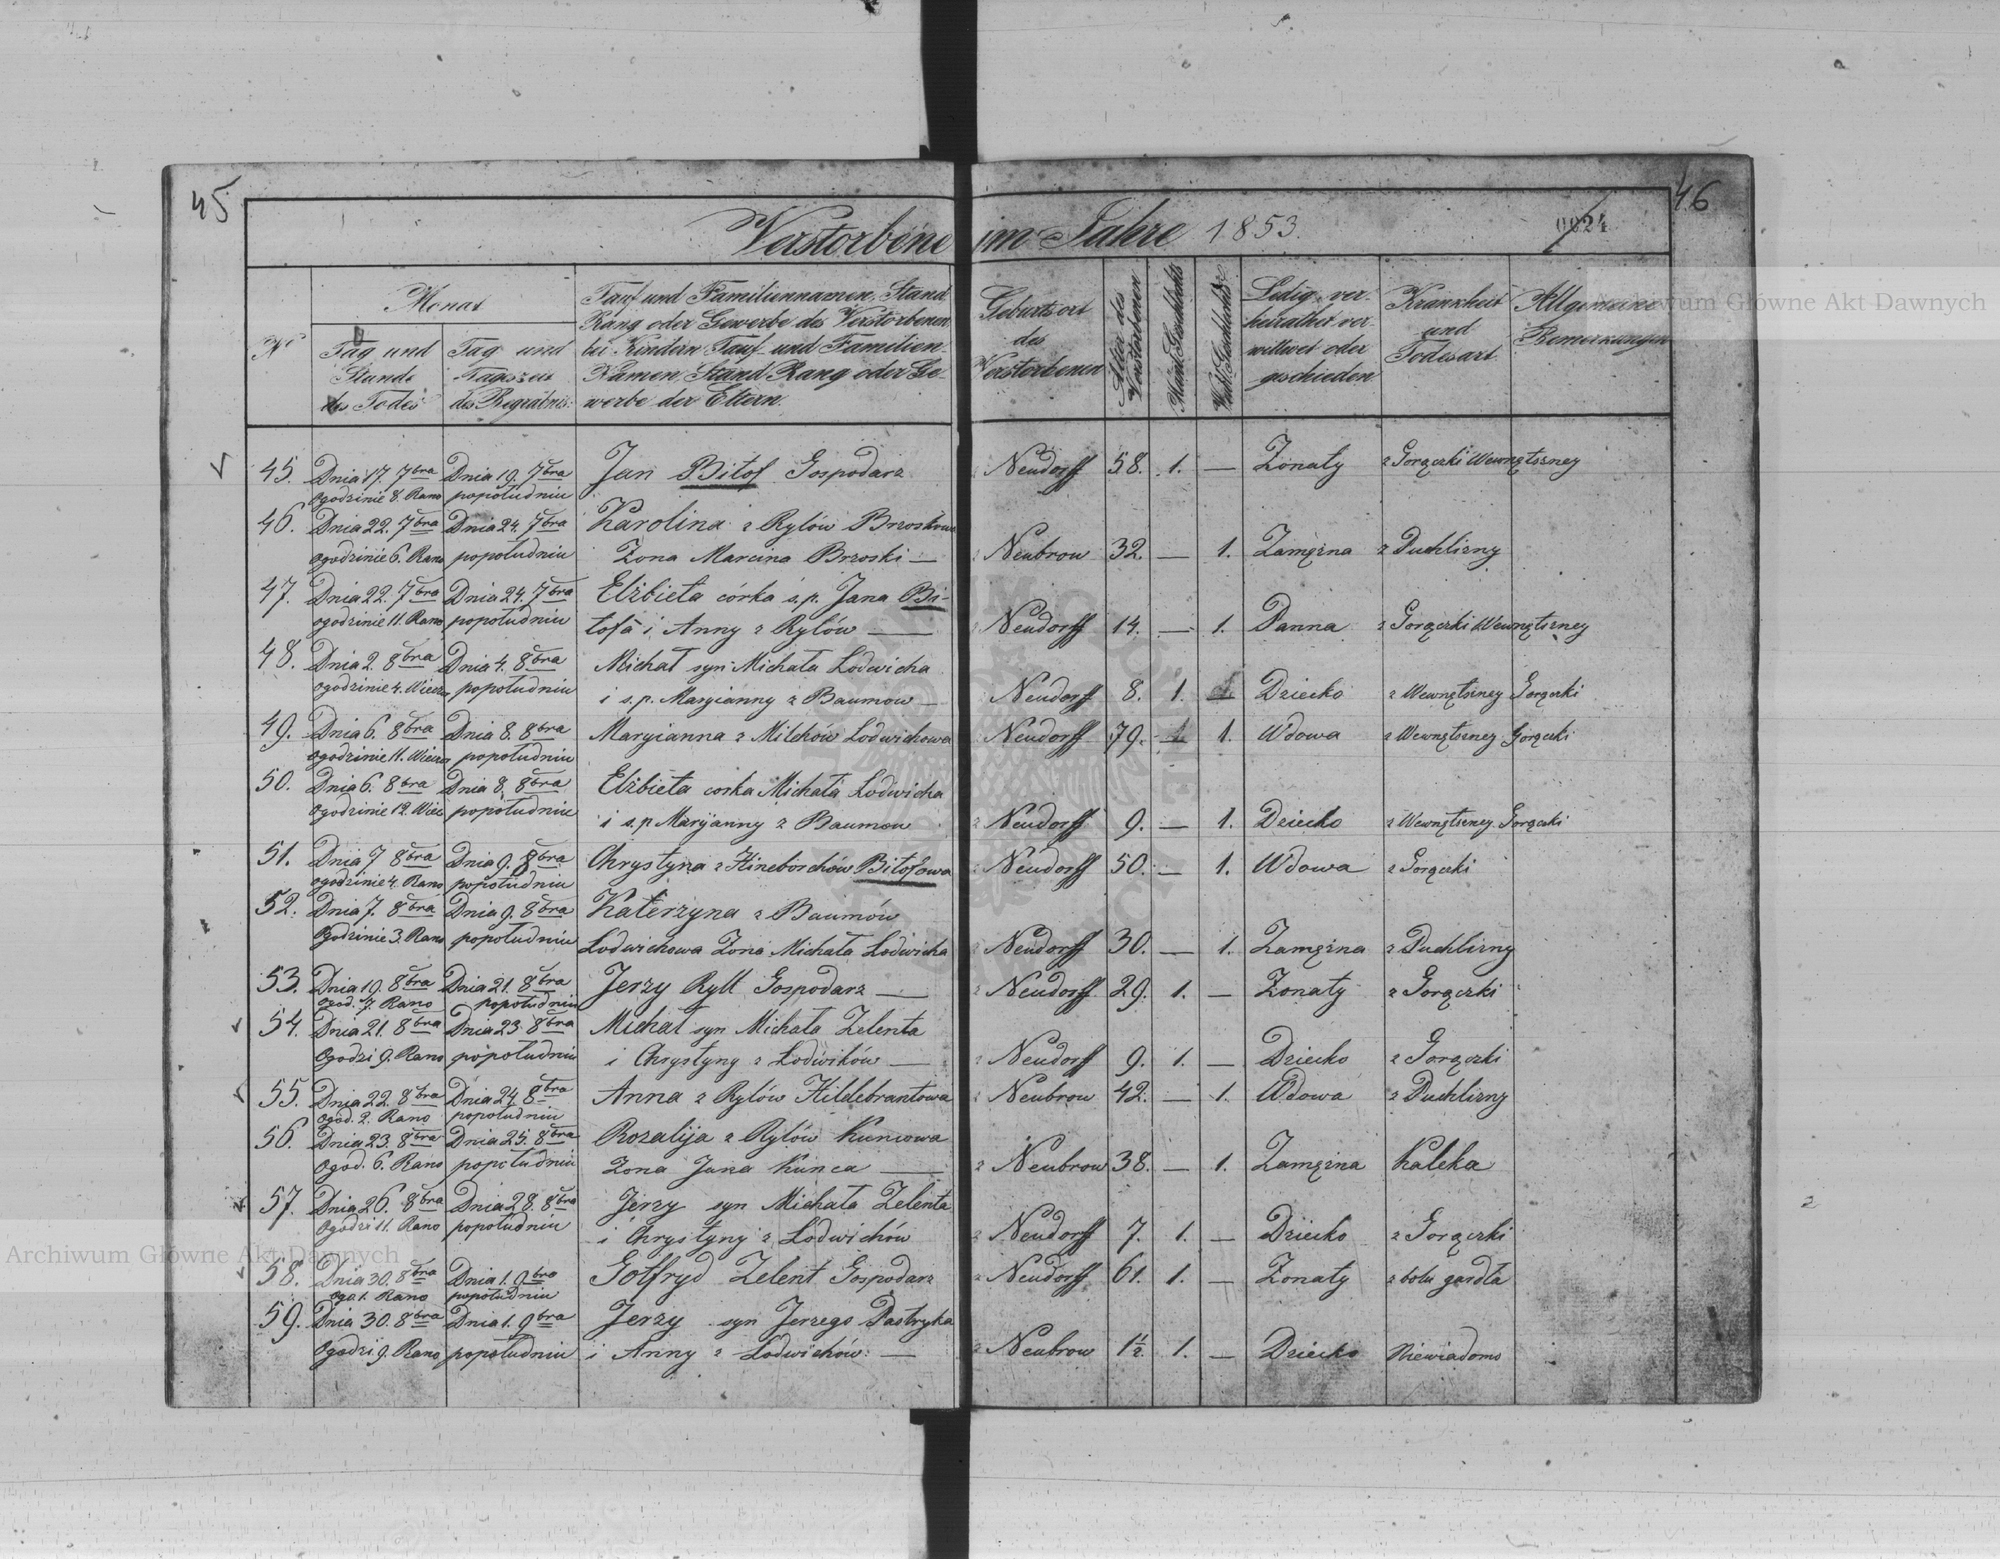 45
46
Verstorbene im Jahre 1853.
0024
Nº
Monat
Tag und Stunde des Todes
Tag und Tageszeit des Begräbnis:
Tauf und Familiennamen, Stand
Rang oder Gewerbe des Verstorbenen
bei Kindern Tauf und Familien
Namen Stand Rang oder Ge-
werbe der Eltern
Geburtsort des Verstorbenen
Alter des Verstorbenen
Männ. Geschlechts
Weib. Geschlechts
Ledig, ver-
heirathet ver-
wittwet oder
geschieden
Krankheit und Todesart
Allgemeine Bemerkungen
Archiwum Główne Akt Dawnych
45. Dnia 17. 7bra Dnia 19. 7bra Jan Bitof Gospodarz Neudorff 58. 1. — Zonaty z Gorączki Wewnętrzney
ogodzinie 8. Rano popołudniu
46. Dnia 22. 7bra Dnia 24. 7bra Karolina z Rylów Brzoskowa
ogodzinie 6. Rano popołudniu Zona Marcina Brzoski — Neubrow 32. — 1. Zamęzna z Puchlizny
47. Dnia 22. 7bra Dnia 24. 7bra Elżbieta córka ś.p. Jana Bi-
ogodzinie 11. Rano popołudniu tofa i Anny z Rylów — z Neudorff 14. — 1. Panna z Gorączki Wewnętrzney
48. Dnia 2. 8bra Dnia 4. 8bra Michał syn Michała Lodwicha
ogodzinie 4. Wieczor popołudniu i s.p. Maryianny z Baumow — Neudorff 8. 1. — Dziecko z Wewnętrzney Gorączki
49. Dnia 6. 8bra Dnia 8. 8bra Maryianna z Milchów Lodwichowa Neudorff 79. — 1. Wdowa z Wewnętrzney Gorączki
ogodzinie 11. Wieczor popołudniu
50. Dnia 6. 8bra Dnia 8. 8bra Elżbieta corka Michała Lodwicha
ogodzinie 12. Wiec popołudniu i s.p. Maryanny z Baumow z Neudorff 9. — 1. Dziecko z Wewnętrzney Gorączki
51. Dnia 7 8bra Dnia 9. 8bra Chrystyna z Hineborchów Bitofowa z Neudorff 50. — 1. Wdowa z Gorączki
ogodzinie 4. Rano popołudniu
52. Dnia 7. 8bra Dnia 9. 8bra Katerzyna z Baumów
Ogodzinie 3. Rano popołudniu Lodwichowa Zona Michała Lodwicha z Neudorff 30. — 1. Zamęzna z Puchlizny
53. Dnia 19. 8bra Dnia 21. 8bra Jerzy Ryll Gospodarz — z Neudorff 29. 1. — Zonaty z Gorączki
ogod. 7. Rano popołudniu
54. Dnia 21. 8bra Dnia 23. 8bra Michał syn Michała Zelenta
Ogodzi 9. Rano popołudniu i Chrystyny z Lodwików — z Neudorff 9. 1. — Dziecko z Gorączki
55. Dnia 22. 8bra Dnia 24 8bra Anna z Rylów Hildebrantowa z Neubrow 42. — 1. Wdowa z Puchlizny
ogod. 2. Rano popołudniu
56. Dnia 23. 8bra Dnia 25. 8bra Rozalija z Rylów Kuncowa
Ogod. 6. Rano popołudniu Zona Jana Kunca — z Neubrow 38. — 1. Zamęzna Kaleka
57. Dnia 26. 8bra Dnia 28. 8bra Jerzy syn Michała Zelenta
Ogodzi 11. Rano popołudniu i Chrystyny z Lodwichów z Neudorff 7. 1. — Dziecko z Gorączki
58. Dnia 30. 8bra Dnia 1. 9bra Gotfryd Zelent Gospodarz z Neudorff 61. 1. — Zonaty z bolu gardła
ogo 1. Rano popołudniu
59. Dnia 30. 8bra Dnia 1. 9bra Jerzy syn Jerzego Pastryka
Ogodzi 9. Rano popołudniu i Anny z Lodwichów: — z Neubrow 1½ 1. — Dziecko Niewiadomo
Archiwum Główne Akt Dawnych